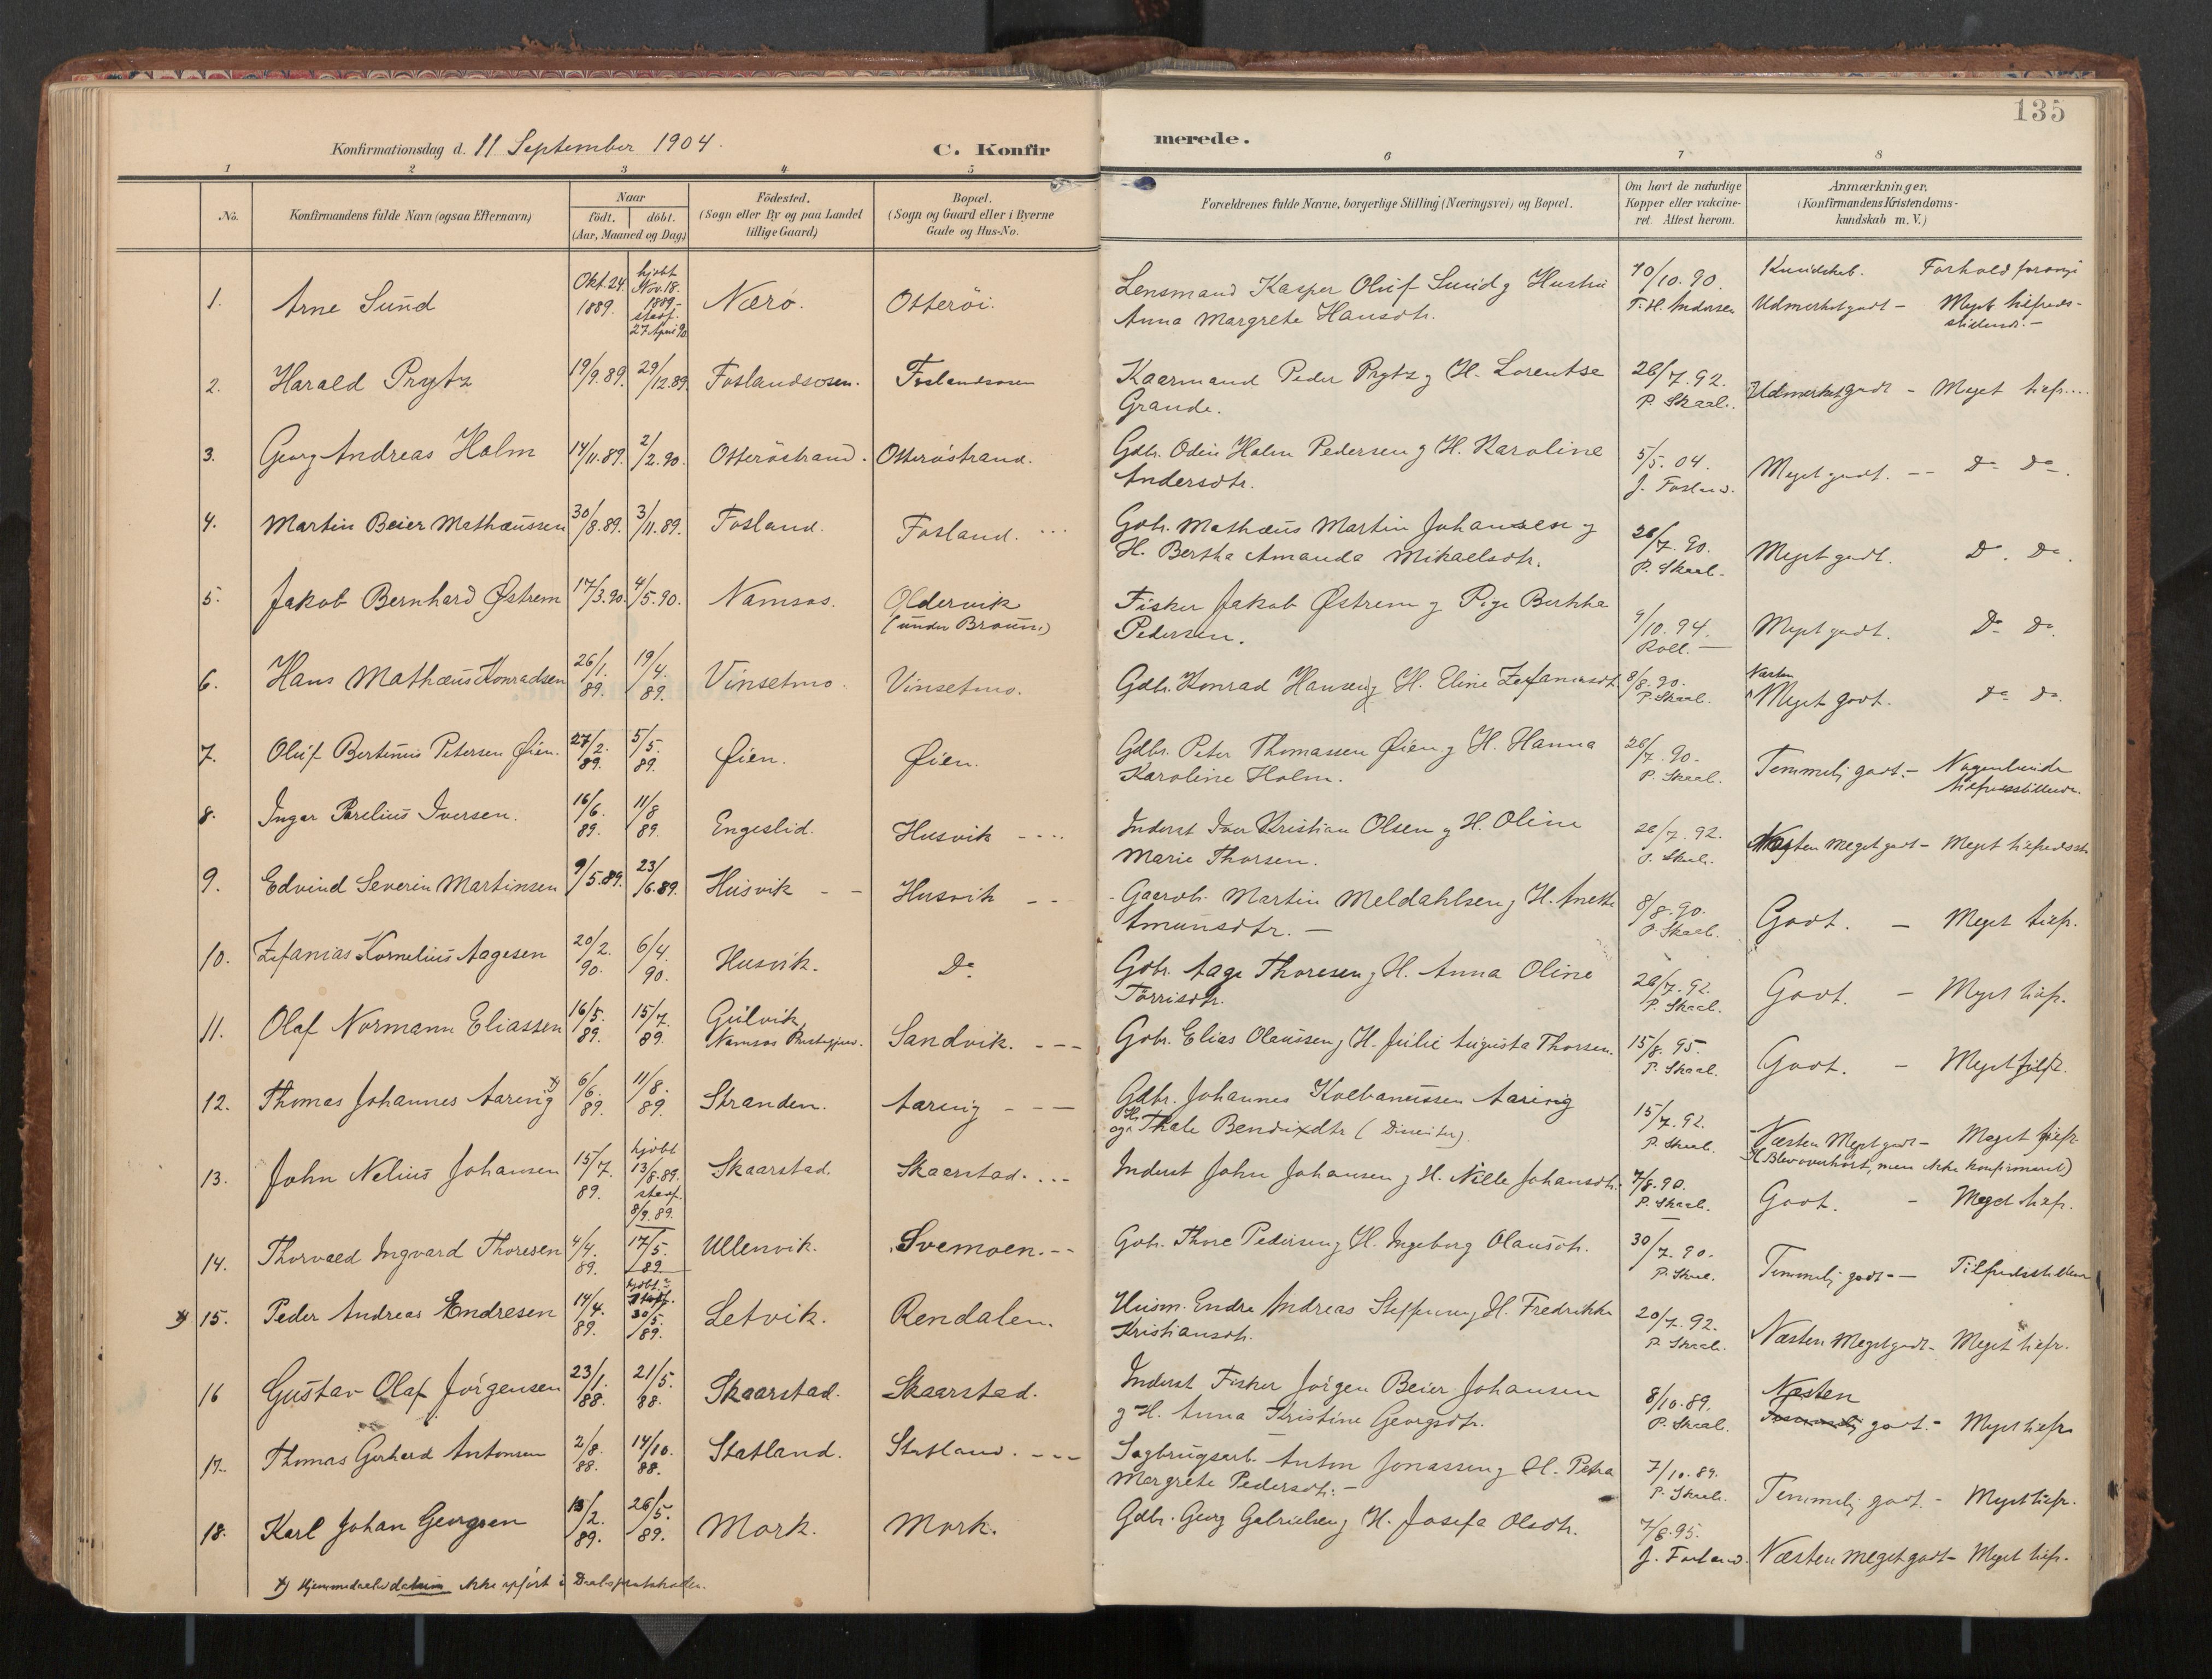 135
Konfirmationsdag d. 11 September 1904.
C. Konfir
merede.
1 2 3 4 5 6 7 8
No.
Konfirmandens fulde Navn (ogsaa Efternavn)
Naar
födt. döbt.
(Aar, Maaned og Dag)
Födested.
(Sogn eller By og paa Landet
tillige Gaard)
Bopæl.
(Sogn og Gaard eller i Byerne
Gade og Hus-No.
Forældrenes fulde Navne, borgerlige Stilling (Næringsvei) og Bopæl.
Om havt de naturlige
Kopper eller vakcine-
ret. Attest herom.
Anmærkninger.
(Konfirmandens Kristendoms-
kundskab m. V.)
Kundskab. Forhold forøvr.
1. Arne Sund Okt. 24. 1889. hjdbt Nov. 18. 1889- stadf. 27 April 90 Nærö. Otteröi.
Lensmand Kasper Oluf Sund og Hustru
Anna Margrete Hansdtr.
10/10. 90. T. H. Andersen Udmerket godt - Meget tilfreds-
stillende. -
2. Harald Prytz 19/9. 89. 29/12. 89. Foslandsosen. Foslandsosen
Kaarmand Peder Prytz og H. Lorentse
Grande.
26/7. 92. P. Skaal. Udmerket godt - Meget tilfr....
3. Georg Andreas Holm 14/11. 89. 2/2. 90. Otteröstrand. Otteröstrand.
Gdbr. Odin Holm Pedersen og H. Karoline
Andersdtr.
5/5. 04. J. Fosland. Meget godt. -- Do Do.
4. Martin Beier Mathæussen 30/8. 89. 3/11. 89. Fosland. Fosland. ...
Gdbr. Mathæus Martin Johansen og
H. Bertha Amanda Mikaelsdtr.
26/7. 90. P. Skaal. Meget godt. Do. Do.
5. Jakob Bernhard Østrem 17/3. 90. 4/5. 90. Namsos. Oldervik
(under Braun.)
Fisker Jakob Østrem og Pige Berthe
Pedersen.
9/10. 94. Roll. Meget godt. Do Do.
6. Hans Mathæus Konradsen 26/1. 89. 19/4. 89. Vinsetmo. Vinsetmo.
Gdbr. Konrad Hansen og H. Eline Zefaniasdt.
8/8. 90. P. Skaal. Næsten
Meget godt. Do Do.
7. Oluf Bertinus Petersen Øien. 27/2. 89. 5/5. 89. Øien. Øien.
Gdbr. Peter Thomassen Øien og H. Hanna
Karoline Holm.
26/7. 90. P. Skaal. Temmelig godt. - Nogenlunde
tilfredsstillende.
8. Ingar Parelius Iversen. 16/6. 89. 11/8 89. Engeslid. Husvik ----
Inderst Iver Kristian Olsen og H. Oline
Marie Thorsen.
26/7. 92. P. Skaal. Næsten meget godt - Meget tilfredsst
9. Edvind Severin Martinsen 9/5. 89. 23/6. 89. Husvik -- Husvik --
Gaardbr. Martin Meldahlsen og H. Anette
Amunsdtr. -
8/8. 90. P. Skaal. Godt. - Meget tilfr.
10. Zefanias Kornelius Aagesen 20/2. 90. 6/4. 90. Husvik. Do
Gdbr. Aage Thoresen og H. Anna Oline
Törrisdtr.
26/7. 92. P. Skaal. Godt. - Meget tilfr.
11. Olaf Normann Eliassen 16/5. 89. 15/7. 89. Gulvik
Namsos Sandvik. ---
Gdbr. Elias Olaussen og H. Julie Augusta Thorsen.
15/8. 95. P. Skaal. Godt. - Meget tilfr.
12. Thomas Johannes Aaring x) 6/6. 89. 11/8. 89. Stranden. Aaring ---
Gdbr. Johannes Kolbanussen Aaring
og H. Thale Bendixdtr (Dissenter).
15/7. 92. P. Skaal. Næsten Meget godt - Meget tilfr
(Blev overhørt, men ikke konfirmeret)
13. John Nelius Johansen 15/7. 89. hjdbt 13/8. 89. stadf. 8/9. 89. Skaarstad. Skaarstad. ...
Inderst John Johansen og H. Nille Johansdtr.
7/8. 90. P. Skaal. Godt. - Meget tilfr.
14. Thorvald Ingvard Thoresen 4/4. 89. 17/5. 89. Ullenvik. Svemoen. --
Gdbr. Thore Pedersen og H. Ingeborg Olausdtr.
30/7. 90. P. Skaal. Temmelig godt. - Tilfredsstillen
x) 15. Peder Andreas Endresen 14/4. 89. hjdbt. stadf. 30/5. 89. Letvik. Rendalen.
Husm. Endre Andreas Steffensen og H. Fredrikke
Kristiansdtr.
20/7. 92. P. Skaal. Næsten Meget godt - Meget tilfr.
16 Gustav Olaf Jörgensen 23/1. 88. 21/5. 88. Skaarstad. Skaarstad.
Inderst Fisker Jörgen Beier Johansen
og H. Anna Kristine Georgsdtr.
8/10. 89. P. Skaal. Næsten
Temmelig godt. - Meget tilfr
17. Thomas Gerhard Antonsen 2/8. 88. 14/10. 88. Statland. Statland. ---
Sagbrugsarb. Anton Jonassen og H. Petra
Margrete Pedersdtr. -
7/10. 89. P. Skaal. Temmelig godt. - Meget tilfr.
18. Karl Johan Georgsen 13/2. 89. 26/5. 89. Mork. Mork.
Gdbr. Georg Gabrielsen og H. Josefa Olsdtr.
7/6. 95. J. Fosland. Næsten meget godt - Meget tilfr.
x) Hjemmedaabsdatum ikke opført i Daabsprotokollen.